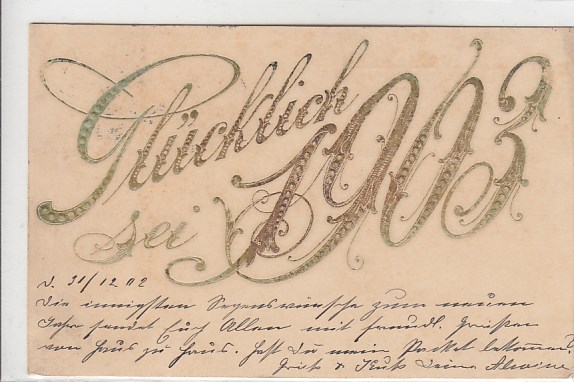 Glücklich
sei 1903
d. 31/12 02
Die innigsten Segenswünsche zum neuen
Jahr sendet Euch Allen mit freundl. Grüßen
von Haus zu Haus. Hast du mein Packet bekommen?
Gruß & Kuß Deine Alwine